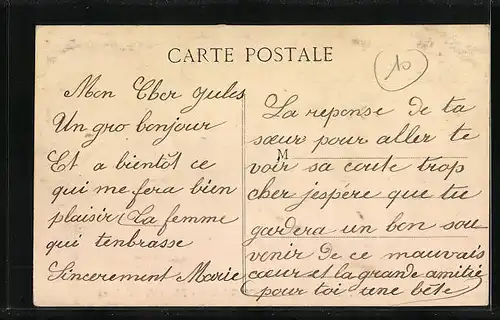 CARTE POSTALE
10
Mon Cher Jules
Un gro bonjour
Et a bientôt ce
qui me fera bien
plaisir (La femme
qui tenbrasse
Sincerement Marie
La reponse de ta
sœur pour aller te
M
voir sa coute trop
cher jespére que tu
gardera un bon sou
venir de ce mauvais
cœur et la grande amitié
pour toi une bête